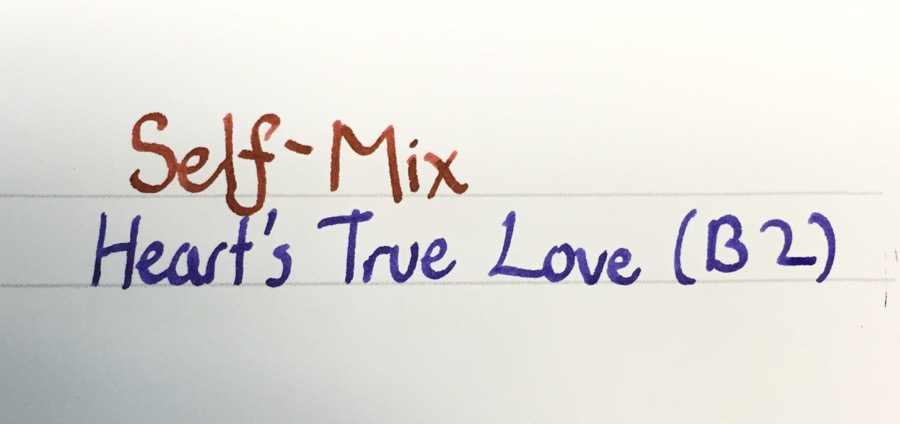 Self-Mix
Heart's True Love (B2)